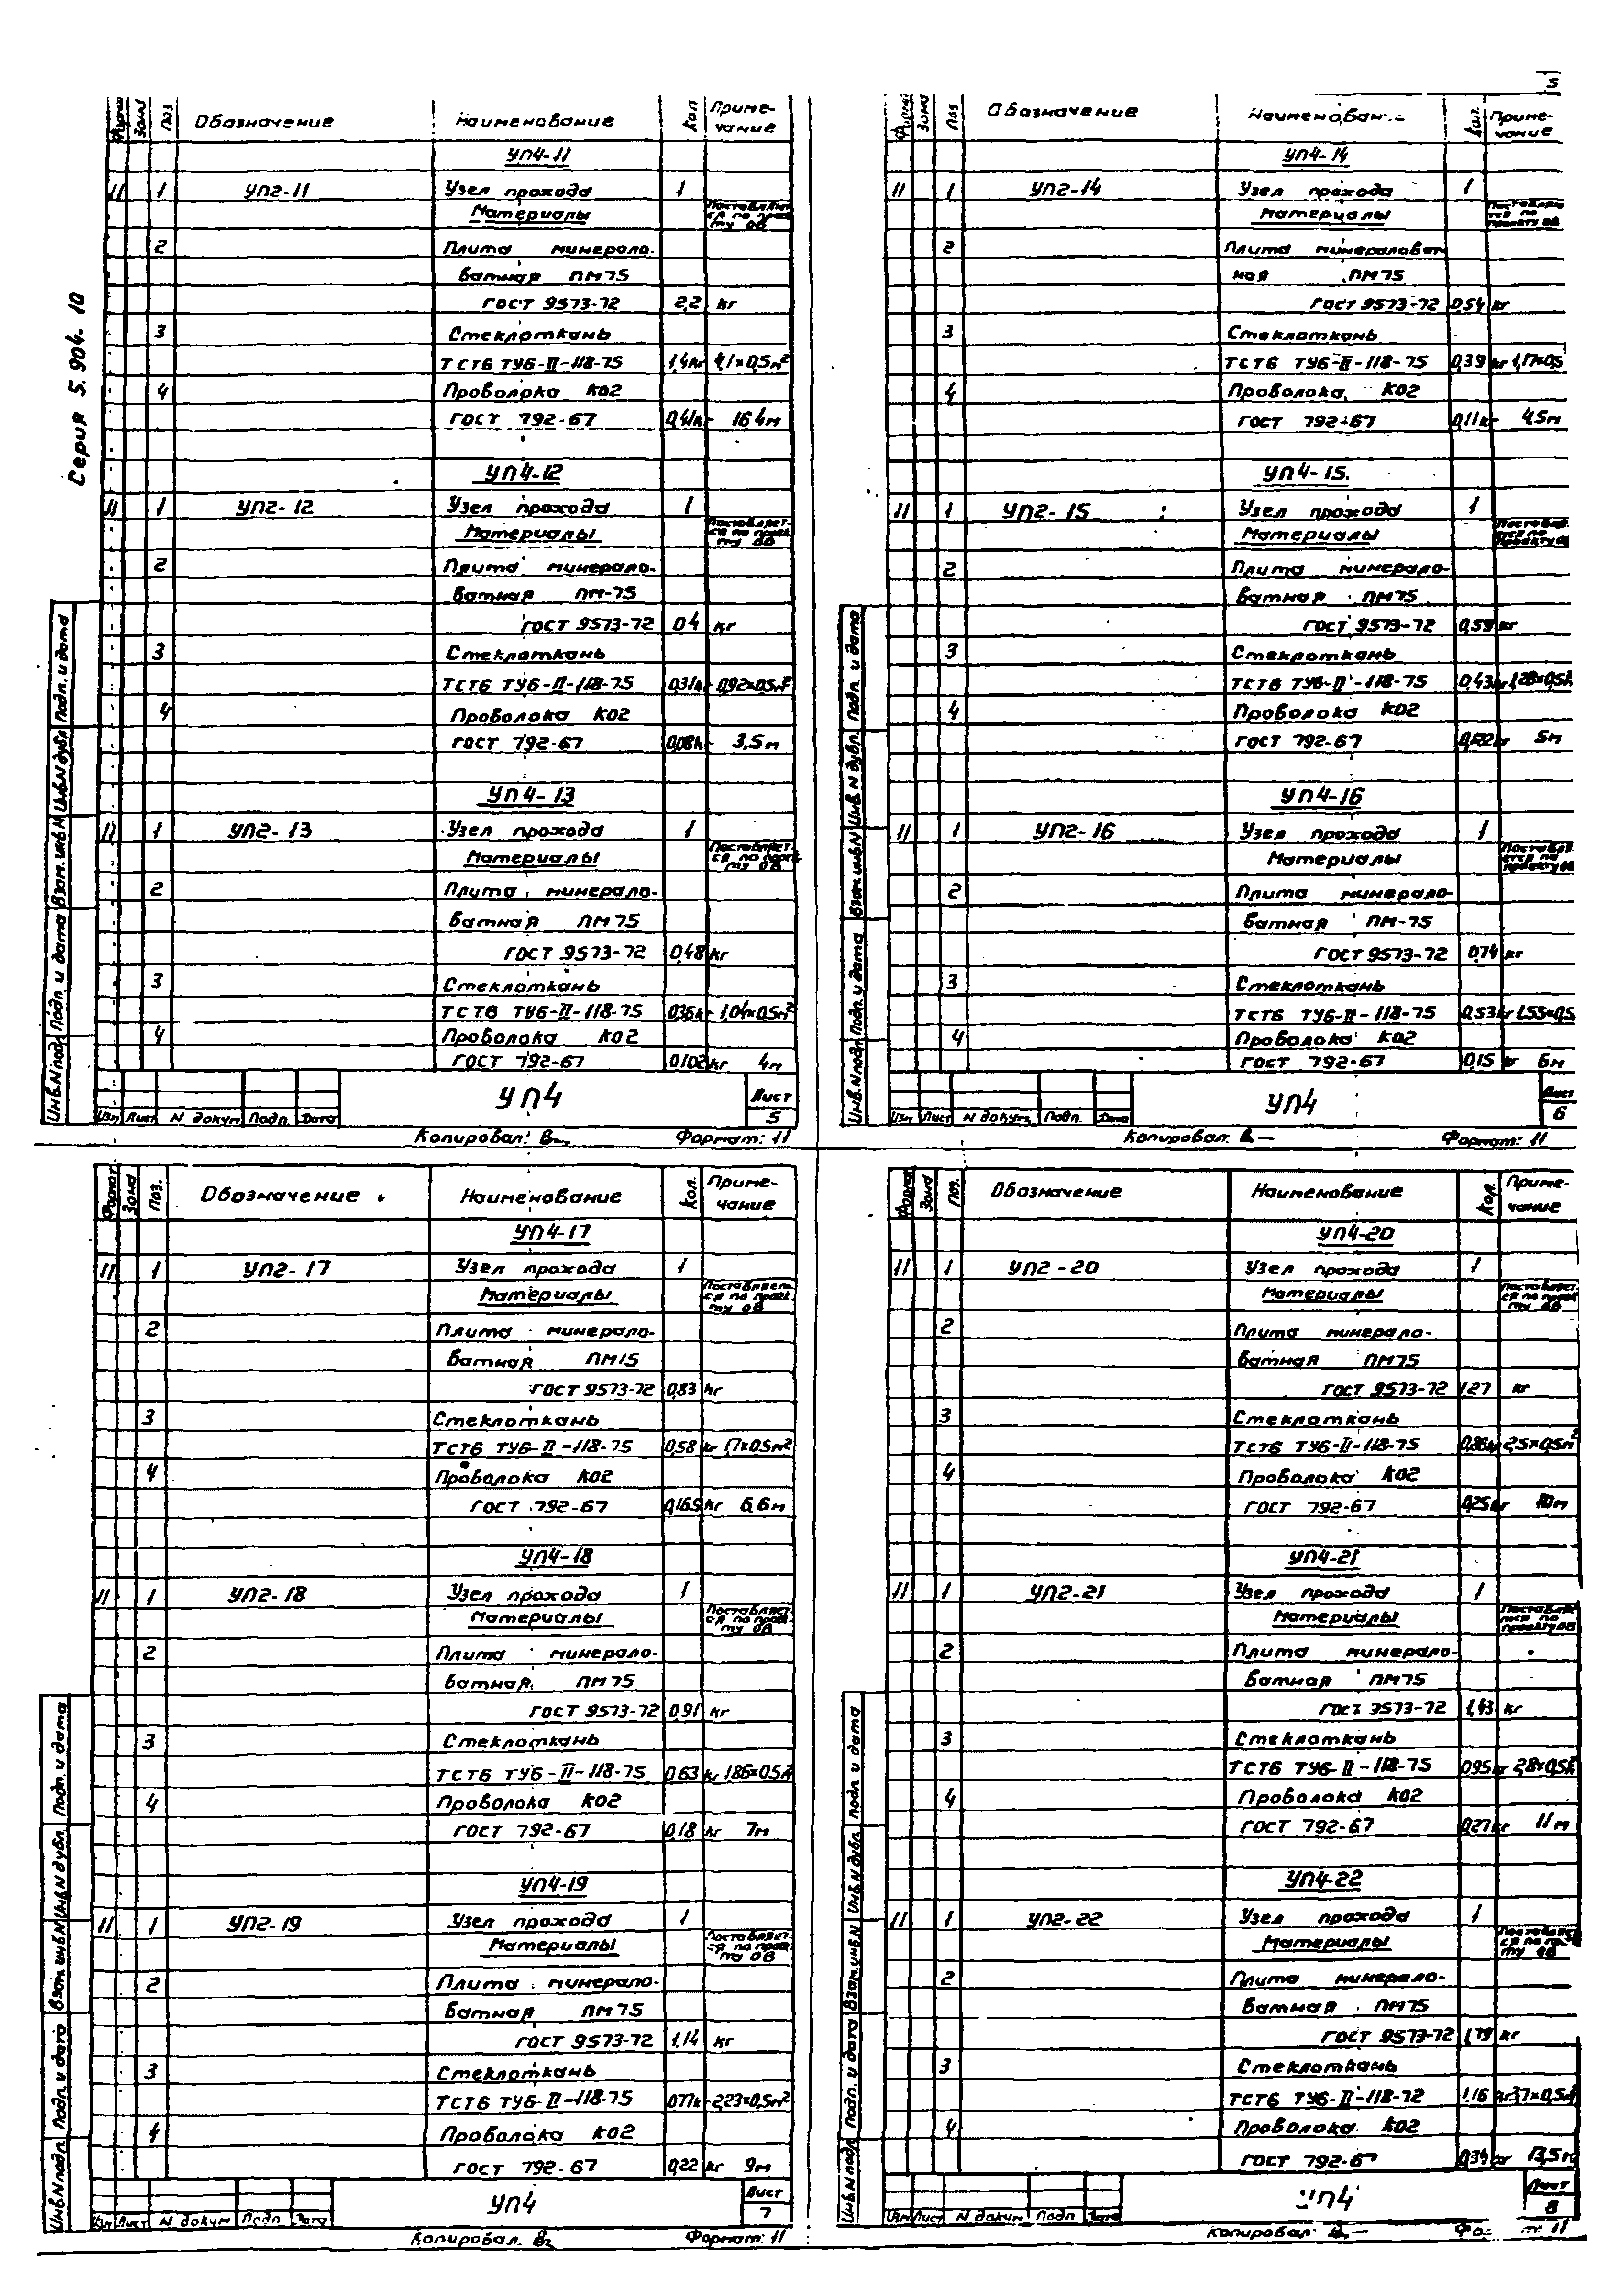 5
Серия 5.904-10
Формат Зона Поз Обозначение Наименование Кол Приме-
чание
УП4-11
11 1 УП2-11 Узел прохода 1
Материалы Поставляет-
ся по проек
ту ОВ
2 Плита минерало-
ватная ПМ75
ГОСТ 9573-72 2,2 кг
3 Стеклоткань
ТСТ6 ТУ6-II-118-75 1,4кг 4,1×0,5м²
4 Проволока КО2
ГОСТ 792-67 0,41кг 16,4м
УП4-12
11 1 УП2-12 Узел прохода 1
Материалы Поставляет-
ся по проек
ту ОВ
2 Плита минерало-
ватная ПМ-75
ГОСТ 9573-72 04 кг
3 Стеклоткань
ТСТ6 ТУ6-II-118-75 0,31кг 0,92×0,5м²
4 Проволока КО2
ГОСТ 792-67 0,08кг 3,5м
УП4-13
11 1 УП2-13 Узел прохода 1
Материалы Поставляет-
ся по проек
ту ОВ
2 Плита минерало-
ватная ПМ75
ГОСТ 9573-72 0,48 кг
3 Стеклоткань
ТСТ6 ТУ6-II-118-75 0,36кг 1,04×0,5м²
4 Проволока КО2
ГОСТ 792-67 0,102кг 4м
Инв.N подл Подп. и дата Взам. инв N Инв.N дубл Подп. и дата
Изм Лист N докум Подп. Дата УП4 Лист
5
Копировал: Формат: 11
Формат Зона Поз Обозначение Наименован Кол. Приме-
чание
УП4-14
11 1 УП2-14 Узел прохода 1
Материалы Поставляе
тся по
проекту ОВ
2 Плита минераловат
ная ПМ75
ГОСТ 9573-72 0,54 кг
3 Стеклоткань
ТСТ6 ТУ6-II-118-75 0,39 кг 1,17×0,5
4 Проволока КО2
ГОСТ 792-67 0,11кг 4,5м
УП4-15
11 1 УП2-15 Узел прохода 1
Материалы Поставл
ется по
проекту ОВ
2 Плита минерало-
ватная ПМ75
ГОСТ 9573-72 0,59 кг
3 Стеклоткань
ТСТ6 ТУ6-II-118-75 0,43 кг 1,28×0,5²
4 Проволока КО2
ГОСТ 792-67 0,122кг 5м
УП4-16
11 1 УП2-16 Узел прохода 1
Материалы Поставл
ется по
проекту ОВ
2 Плита минерало-
ватная ПМ-75
ГОСТ 9573-72 0,74 кг
3 Стеклоткань
ТСТ6 ТУ6-II-118-75 0,53кг 1,53×0,5
4 Проволока КО2
ГОСТ 792-67 0,15 кг 6м
Инв.N подл Подп. и дата Взам. инв N Инв. N дубл. Подп. и дата
Изм Лист N докум. Подп. Дата УП4 Лист
6
Копировал: Формат: 11
Формат Зона Поз. Обозначение Наименование Кол. Приме-
чание
УП4-17
11 1 УП2-17 Узел прохода 1
Материалы Поставляет
ся по проек
ту ОВ
2 Плита минерало-
ватная ПМ15
ГОСТ 9573-72 0,83 кг
3 Стеклоткань
ТСТ6 ТУ6-II-118-75 0,58 кг 1,7×0,5м²
4 Проволока КО2
ГОСТ 792-67 0,165кг 6,6м
УП4-18
11 1 УП2-18 Узел прохода 1
Материалы Поставляет-
ся по проек
ту ОВ
2 Плита минерало-
ватная ПМ75
ГОСТ 9573-72 0,91 кг
3 Стеклоткань
ТСТ6 ТУ6-II-118-75 0,63 кг 1,86×0,5м
4 Проволока КО2
ГОСТ 792-67 0,18 кг 7м
УП4-19
11 1 УП2-19 Узел прохода 1
Материалы Поставляет-
ся по проек
ту ОВ
2 Плита минерало-
ватная ПМ75
ГОСТ 9573-72 1,14 кг
3 Стеклоткань
ТСТ6 ТУ6-II-118-75 0,77кг 2,23×0,5м²
4 Проволока КО2
ГОСТ 792-67 0,22 кг 9м
Инв N подл. Подп. и дата Взам инв N Инв. N дубл. Подп. и дата
Изм Лист N докум Подп Дата УП4 Лист
7
Копировал. Формат: 11
Формат Зона Поз. Обозначение Наименование Кол. Приме-
чание
УП4-20
11 1 УП2-20 Узел прохода 1
Материалы Поставляет-
ся по проек
ту ОВ
2 Плита минерало-
ватная ПМ75
ГОСТ 9573-72 1,27 кг
3 Стеклоткань
ТСТ6 ТУ6-II-118-75 0,88кг 2,5×0,5м²
4 Проволока КО2
ГОСТ 792-67 0,25кг 10м
УП4-21
11 1 УП2-21 Узел прохода 1
Материалы Поставляе
тся по
проекту ОВ
2 Плита минерало-
ватная ПМ75
ГОСТ 9573-72 1,43 кг
3 Стеклоткань
ТСТ6 ТУ6-II-118-75 0,95кг 2,8×0,5м²
4 Проволока КО2
ГОСТ 792-67 0,27кг 11м
УП4-22
11 1 УП2-22 Узел прохода 1
Материалы Поставляет
ся по проек
ту ОВ
2 Плита минерало-
ватная ПМ75
ГОСТ 9573-72 1,79 кг
3 Стеклоткань
ТСТ6 ТУ6-II-118-72 1,16 кг 3,7×0,5м²
4 Проволока КО2
ГОСТ 792-67 0,34 кг 13,5м
Инв N подл Подп. и дата Взам.инв.N Инв N дубл Подп и дата
Изм Лист N докум Подп Дата УП4 Лист
8
Копировал: 11